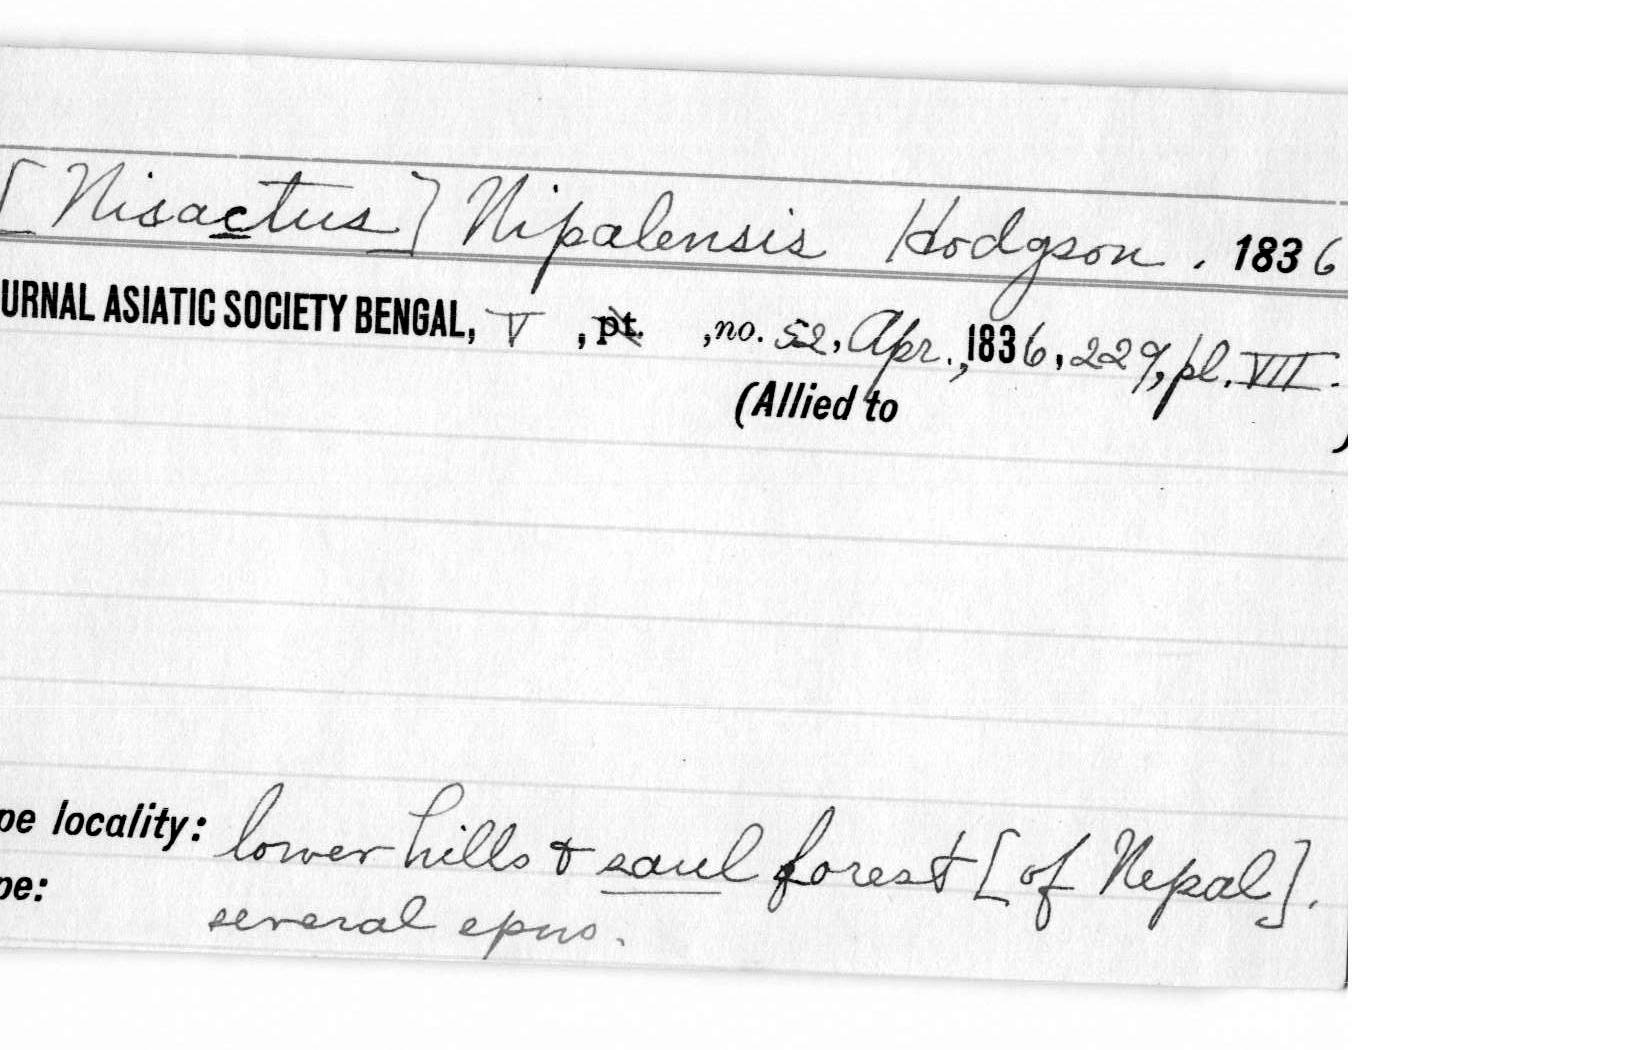 [Nisactus] Nipalensis Hodgson . 1836
URNAL ASIATIC SOCIETY BENGAL, V , pt. ,no. 52, Apr., 1836, 229, pl. VII.
(Allied to )
pe locality: lower hills & saul forest [of Nepal].
pe: several spms.